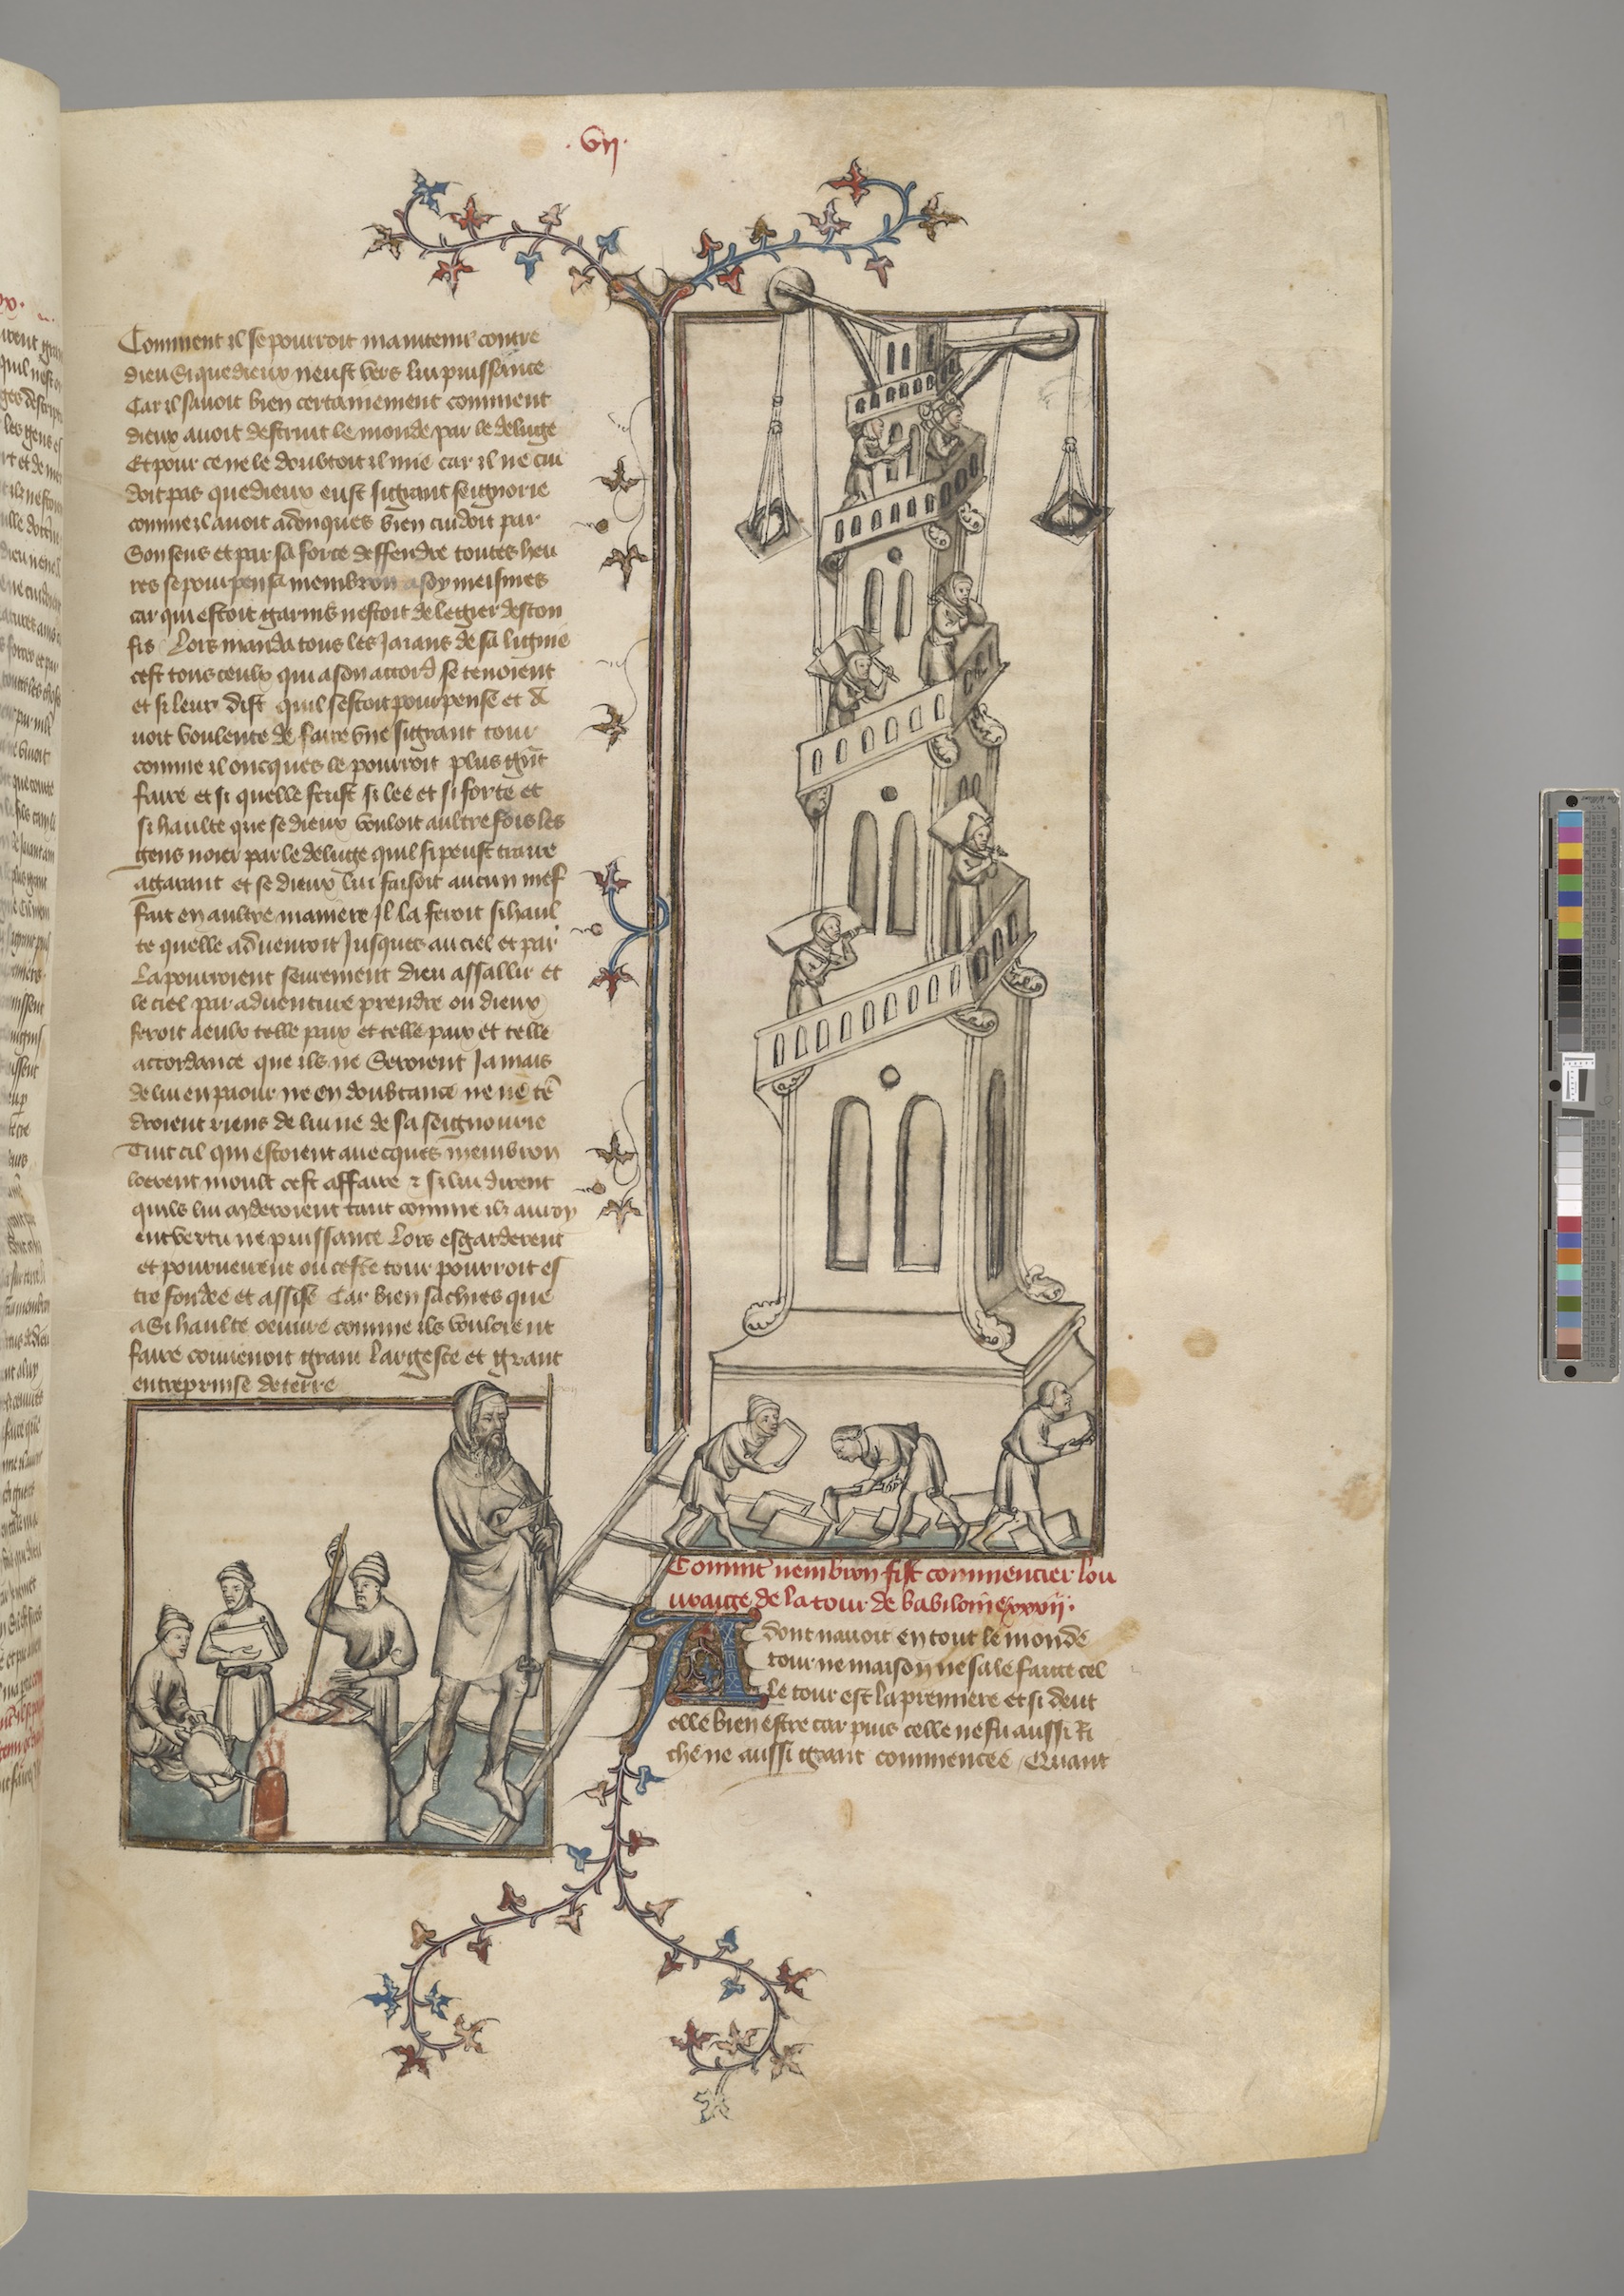 .vij.
Comment il se pourroit maintenir contre
dieu Si que dieux neust vers lui puissance
Car il savoit bien certainement comment
dieux avoit destruit le monde par le deluge
Et pour ce ne le doubtoit il mie car il ne cui
doit pas que dieux eust si grant seignorie
comme il avoit adonques bien cuidoit par
Son sens et par sa force deffendre toutes heu
res se pourpensa membron a soy meismes
car qui estoit garnis nestoit de legier descon
fis Lors manda tous les Jaians de sa lignie
cest tous ceulx qui a son accord se tenoient
et si leur dist quil sestoit pourpense et a
uoit voulente de faire vne si grant tour
comme il oncques le pourroit plus grant
faire et si quelle feust si lee et si forte et
si haulte que se dieux vouloit aultre fois les
gens noier par le deluge quil si peust trouve
a garant et se dieux lui faisoit aucun mef
fait en aultre maniere Il la feroit si haul
te quelle advenroit Jusques au ciel et par
La pourroient seurement dieu assallir et
le ciel par adventure prendre ou dieux
feroit a eulx telle paix et telle paix et telle
accordance que ils ne Seroient Jamais
de lui en paour ne en doubtance ne nē tē
droient riens de lui ne de sa seignourie
Tuit cil qui estoient avecques membron
loerent moult cest affaire z si lui dirent
quils lui aideroient tant comme ilz auroy
ent vertu ne puissance Lors esgarderent
et pourueurent ou ceste tour pourroit es
tre fondee et assise Car bien sachies que
a Si haulte oeuure comme ils vouloient
faire conuenoit grant largesce et grant
entreprinse de terre
Commēt nembron fist commencier lou
uraige de la tour de babiloine xxxij.
A dont nauoit en tout le monde
tour ne maison ne sale faite cel
le tour est la premiere et si deut
elle bien estre car puis celle ne fu aussi ri
che ne aussi grant commencee Quant